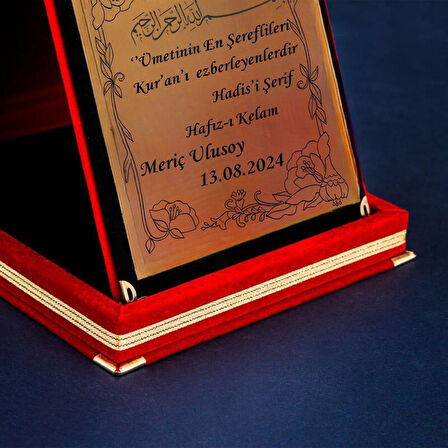 بسم الله الرحمن الرحيم
‘’Ümetinin En Şereflileri
Kur’an’ı ezberleyenlerdir
Hadis’i Şerif
Hafız-ı Kelam
Meriç Ulusoy
13.08.2024